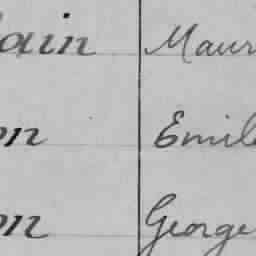 ain Maur
on Emil
on George